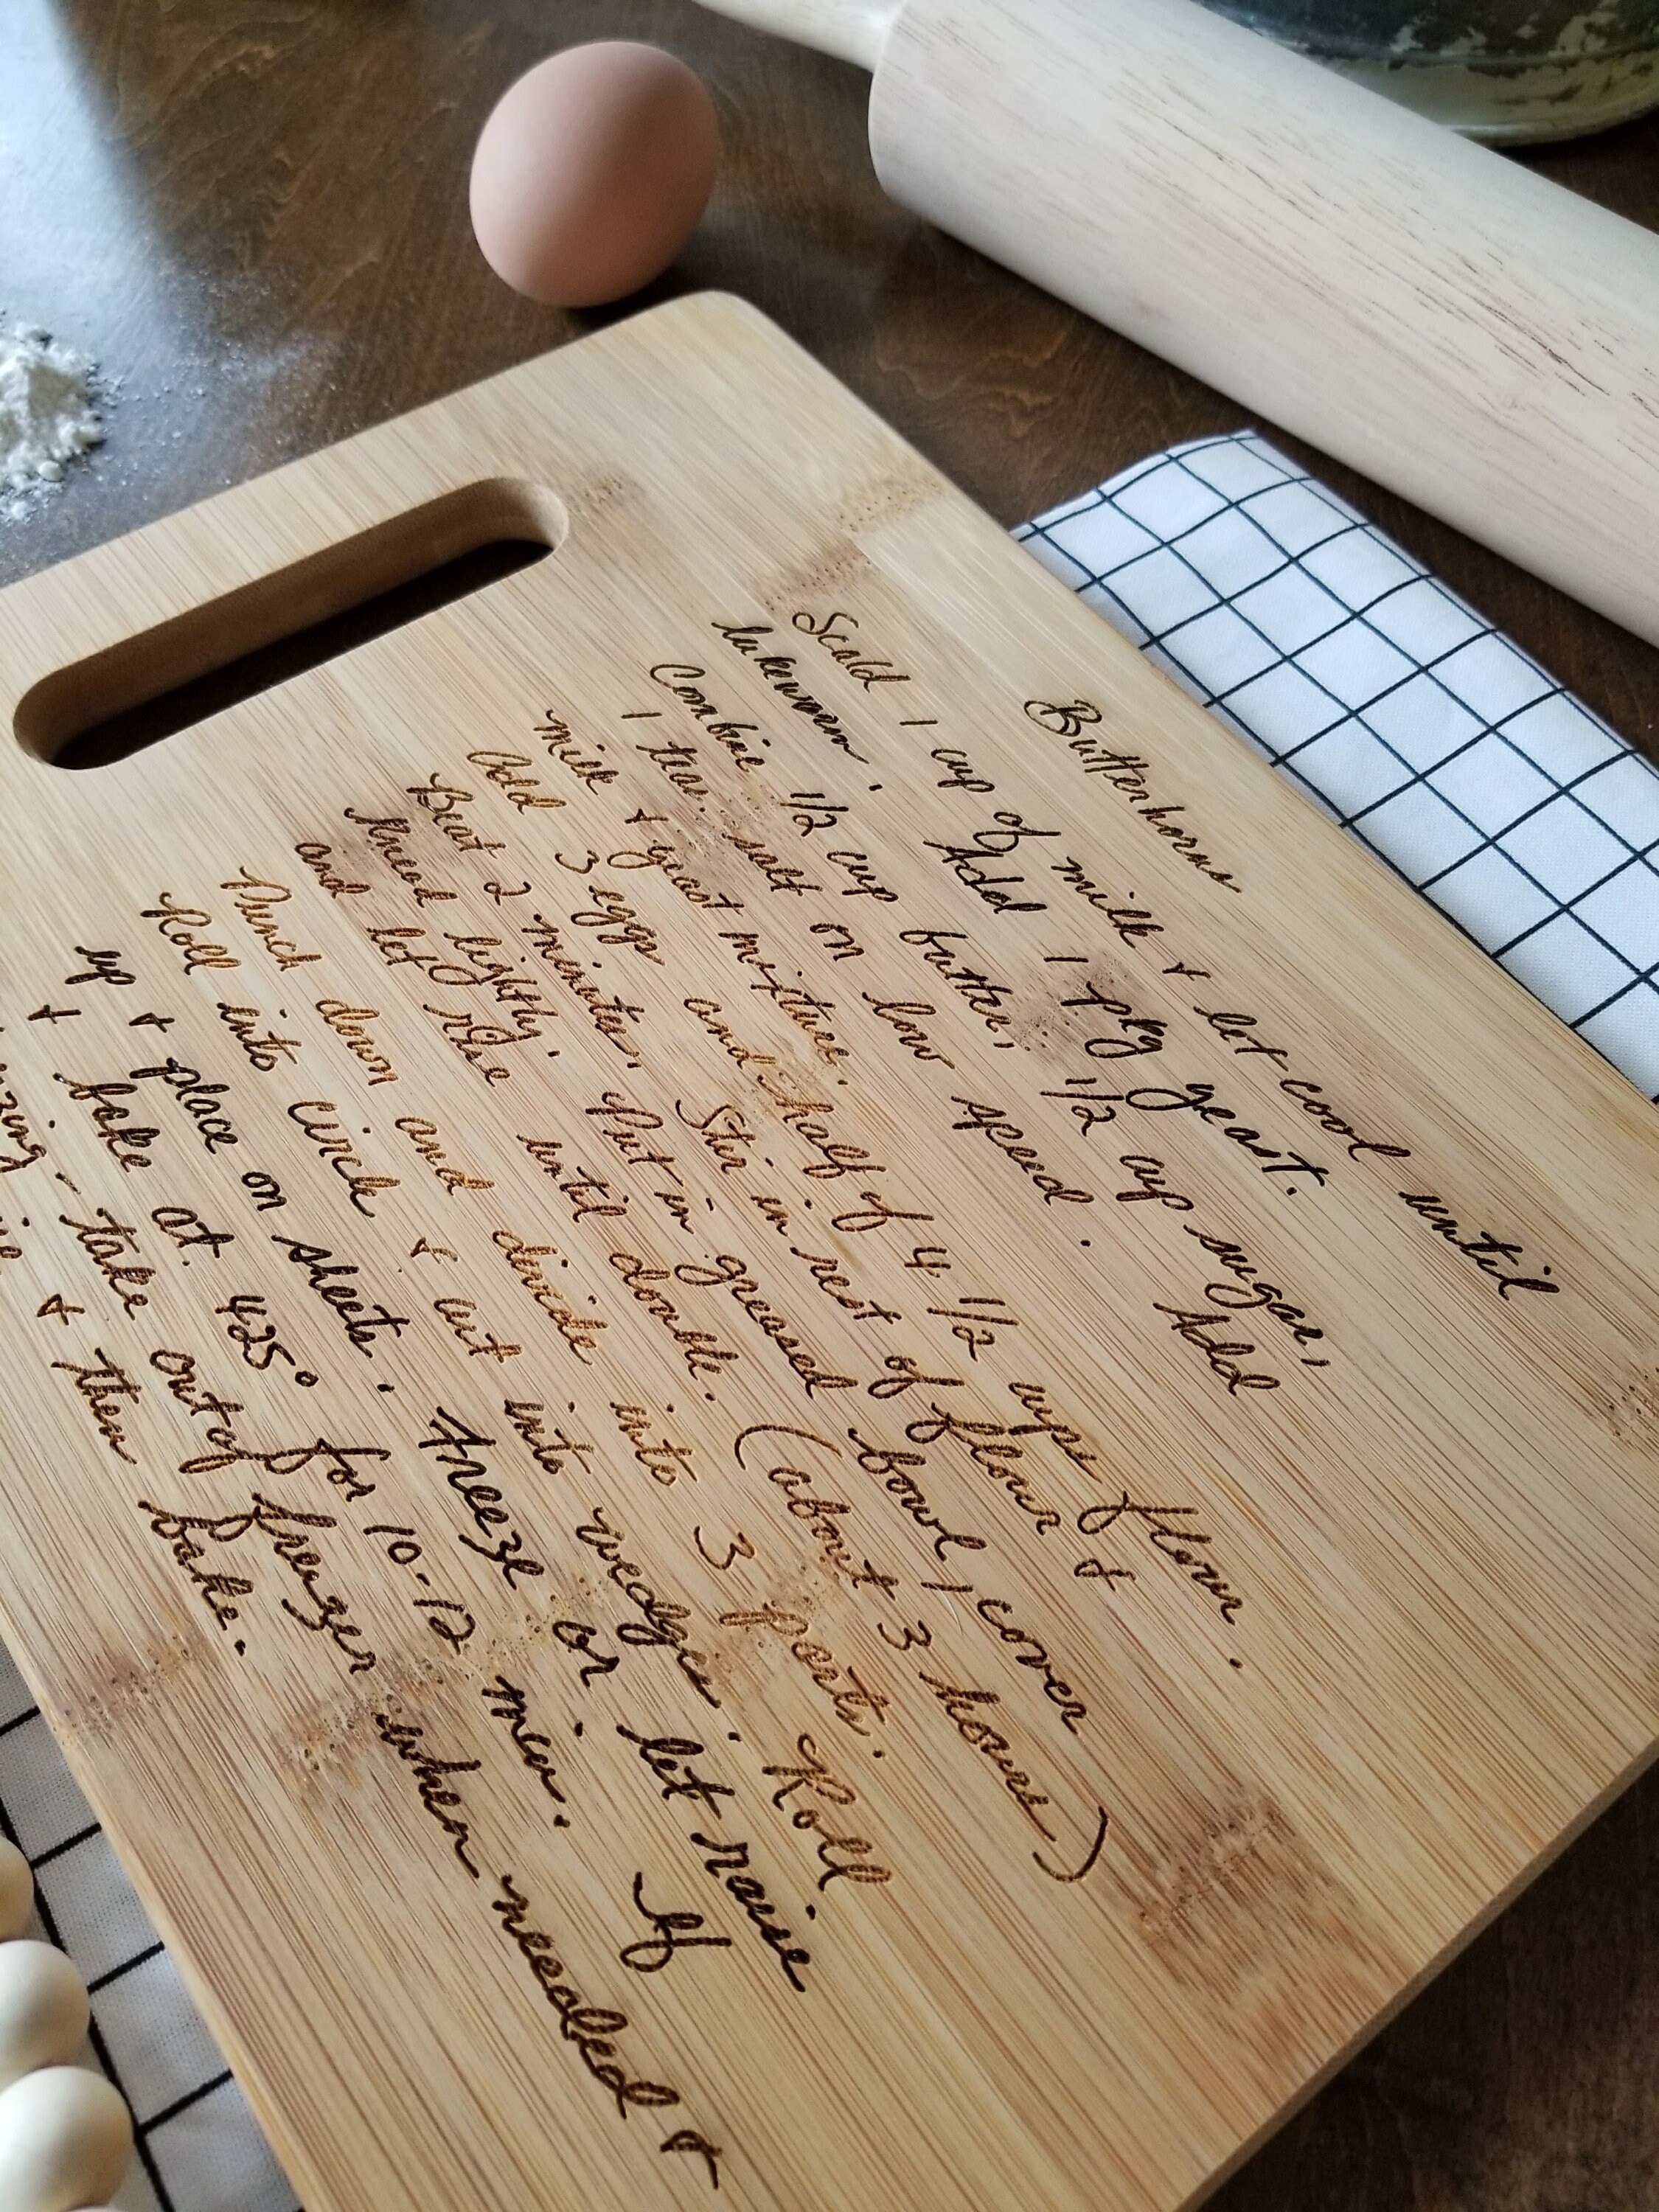 Butterhorns
Scald 1 cup of milk + let cool until
lukewarm. Add 1 pkg yeast.
Combine 1/2 cup butter, 1/2 cup sugar,
1 teas. salt on low speed. Add
milk + yeast mixture.
Add 3 eggs and half of 4 1/2 cups flour.
Beat 2 minutes. Stir in rest of flour +
knead lightly. Put in greased bowl, cover
and let rise until double. (about 3 hours)
Punch down and divide into 3 parts. Roll
Roll into circle & cut into wedges.
up + place on sheets. Freeze or let raise
+ bake at 425° for 10-12 min. If
take out of freezer when needed +
+ then bake.